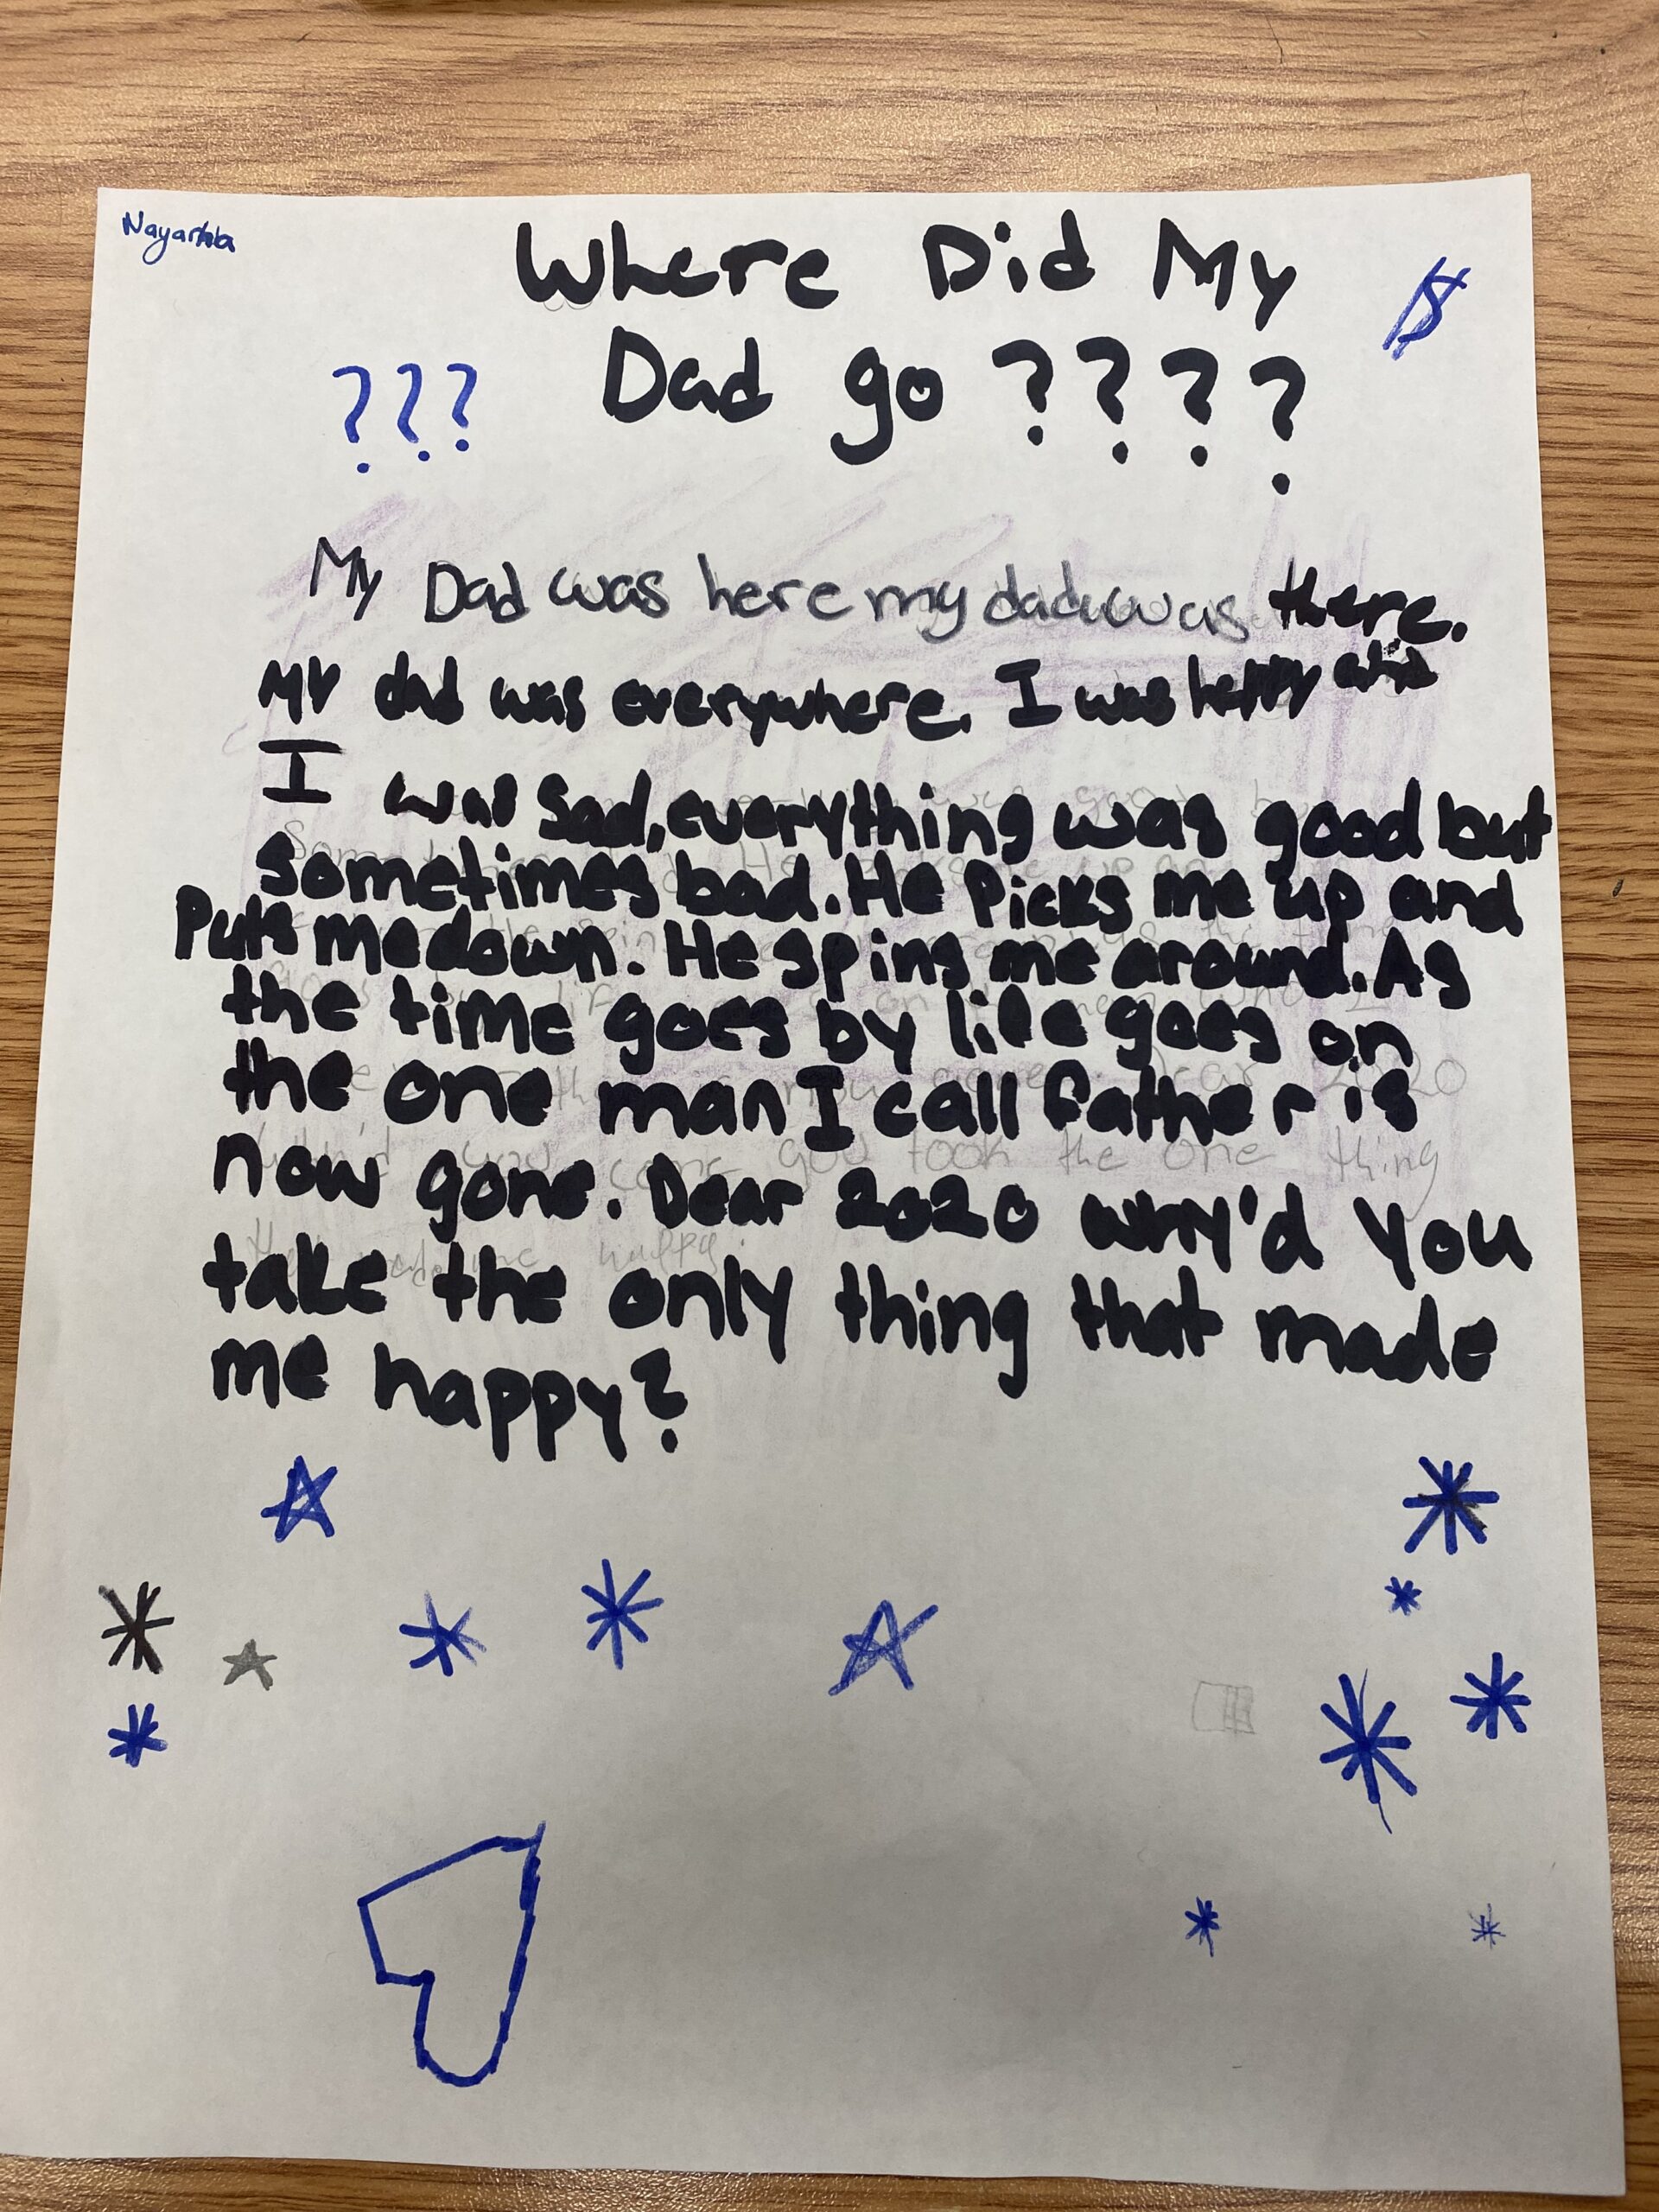 Where Did My
$
??? Dad go ????
My Dad was here my dad was there.
My dad was everywhere. I was happy and
I was sad, everything was good but
sometimes bad. He Picks me up and
Puts me down. He spins me around. As
the time goes by life goes on
the one man I call father is
now gone. Dear 2020 why'd you
take the only thing that made
me happy?